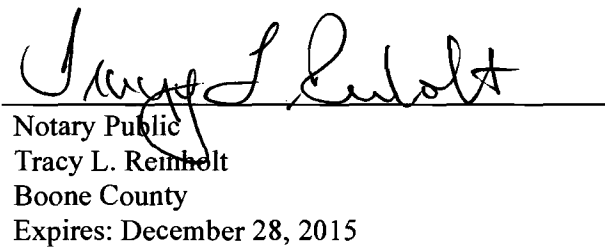 Tracy L. Reinholt
Notary Public
Tracy L. Reinholt
Boone County
Expires: December 28, 2015